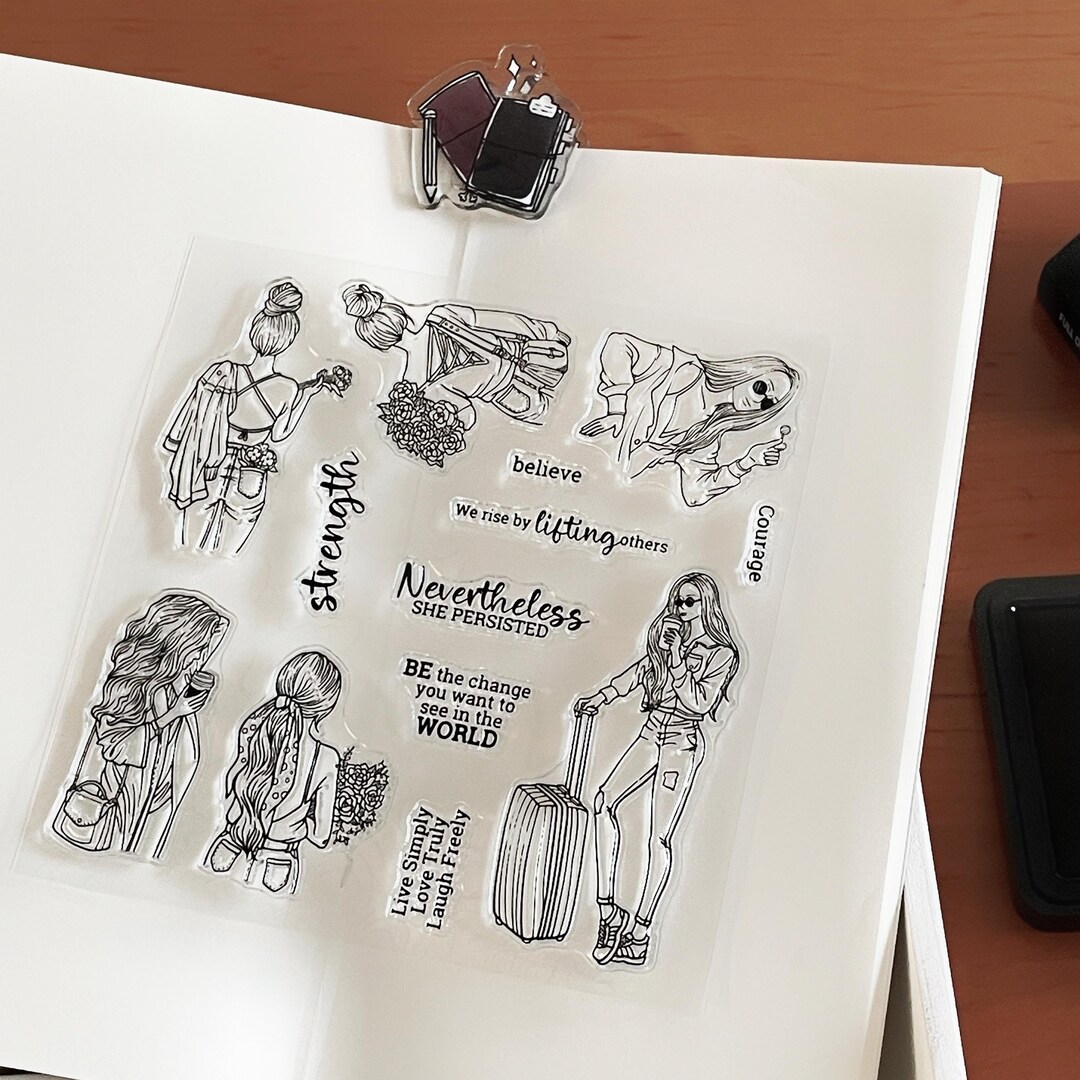 believe
We rise by lifting others
strength
Courage
Nevertheless
SHE PERSISTED
BE the change
you want to
see in the
WORLD
Live Simply
Love Truly
Laugh Freely